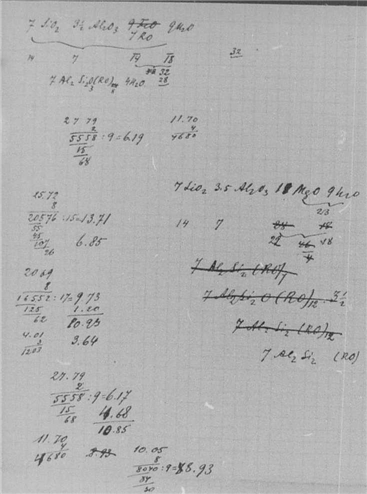 7 SiO₂ 3½ Al₂O₃ 9H₂O
7RO
14 7 14 18
32
28
7 Al₂ Si₂O₃(RO) 4H₂O
27 79
2
5558 : 9 = 6.19
15
68
11.70
4
4680
25.72
8
20576 : 15 = 13,71
55
45
107
26
6.85
7 SiO₂ 3.5 Al₂O₃ 18 MgO 9H₂O
2/3
14 7
7 Al₂ Si₂ (RO)₇
7 Al₂ Si₂ O (RO)₁₂ . 3½
7 Al₂ Si₂ (RO)₁₂
7 Al₂ Si₂ (RO)
20.69
8
16552 : 17 = 9.73
125
62
1.20
10.93
4.01
3
1203
3.64
27.79
2
5558 : 9 = 6.17
15
68
4.68
10.85
11.70
4
4680
10.05
8
8040 : 9 = 8.93